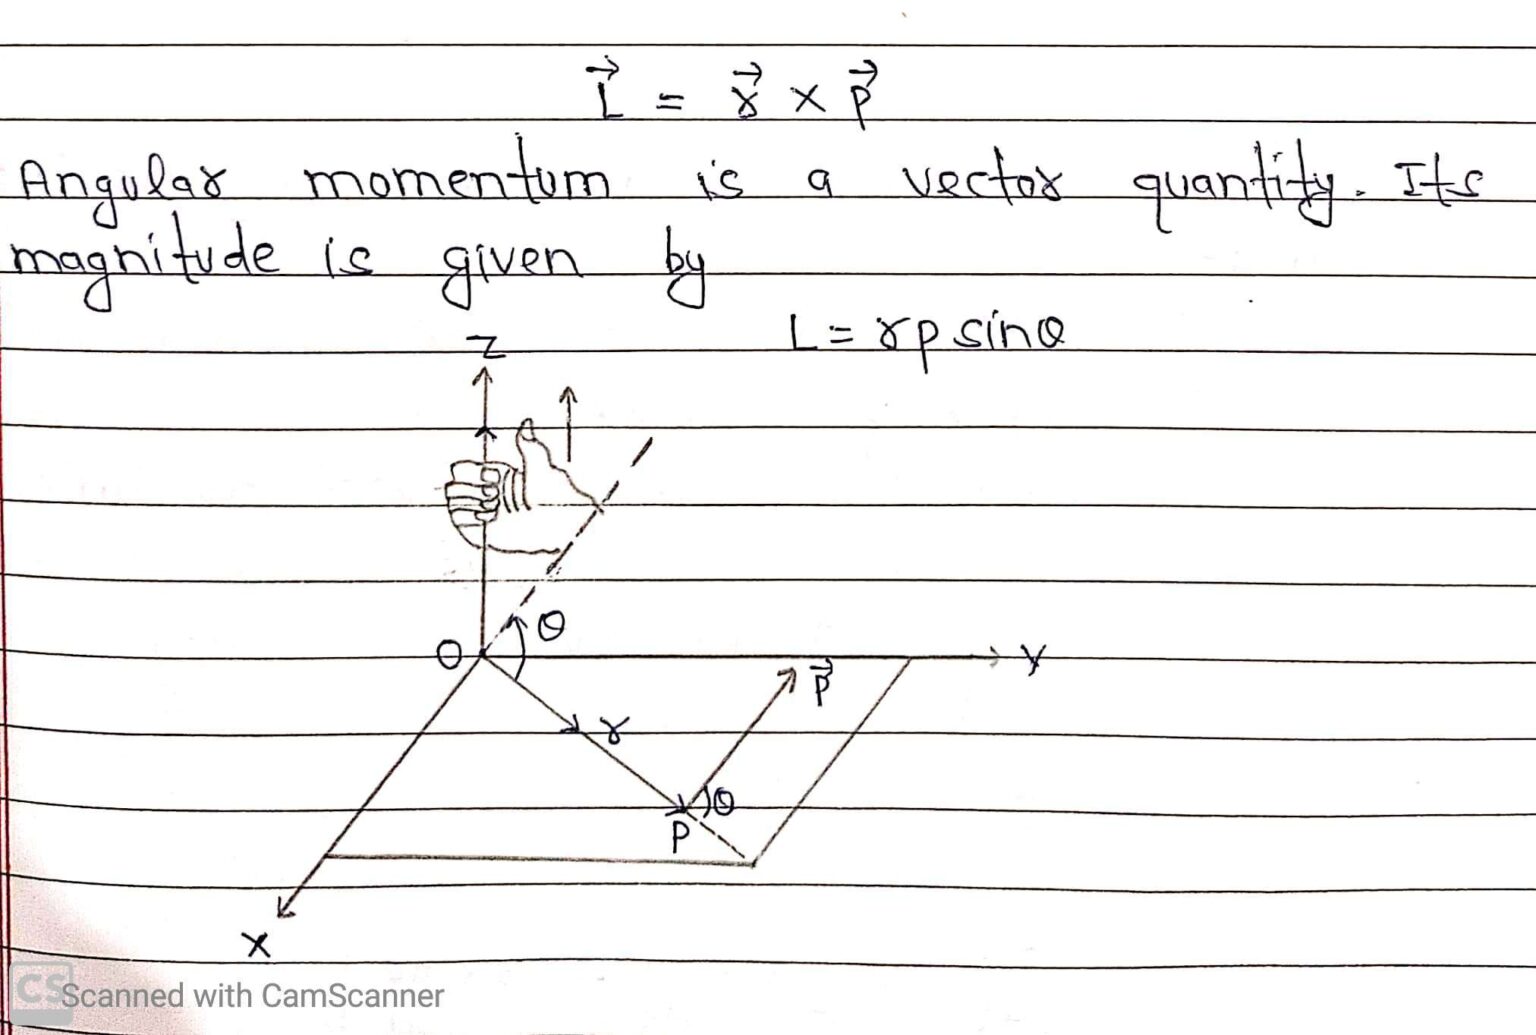 L⃗ = r⃗ × p⃗
Angular momentum is a vector quantity. Its
magnitude is given by
L = rp sinθ
Z
θ
O
Y
p⃗
r
θ
P
X
CS Scanned with CamScanner